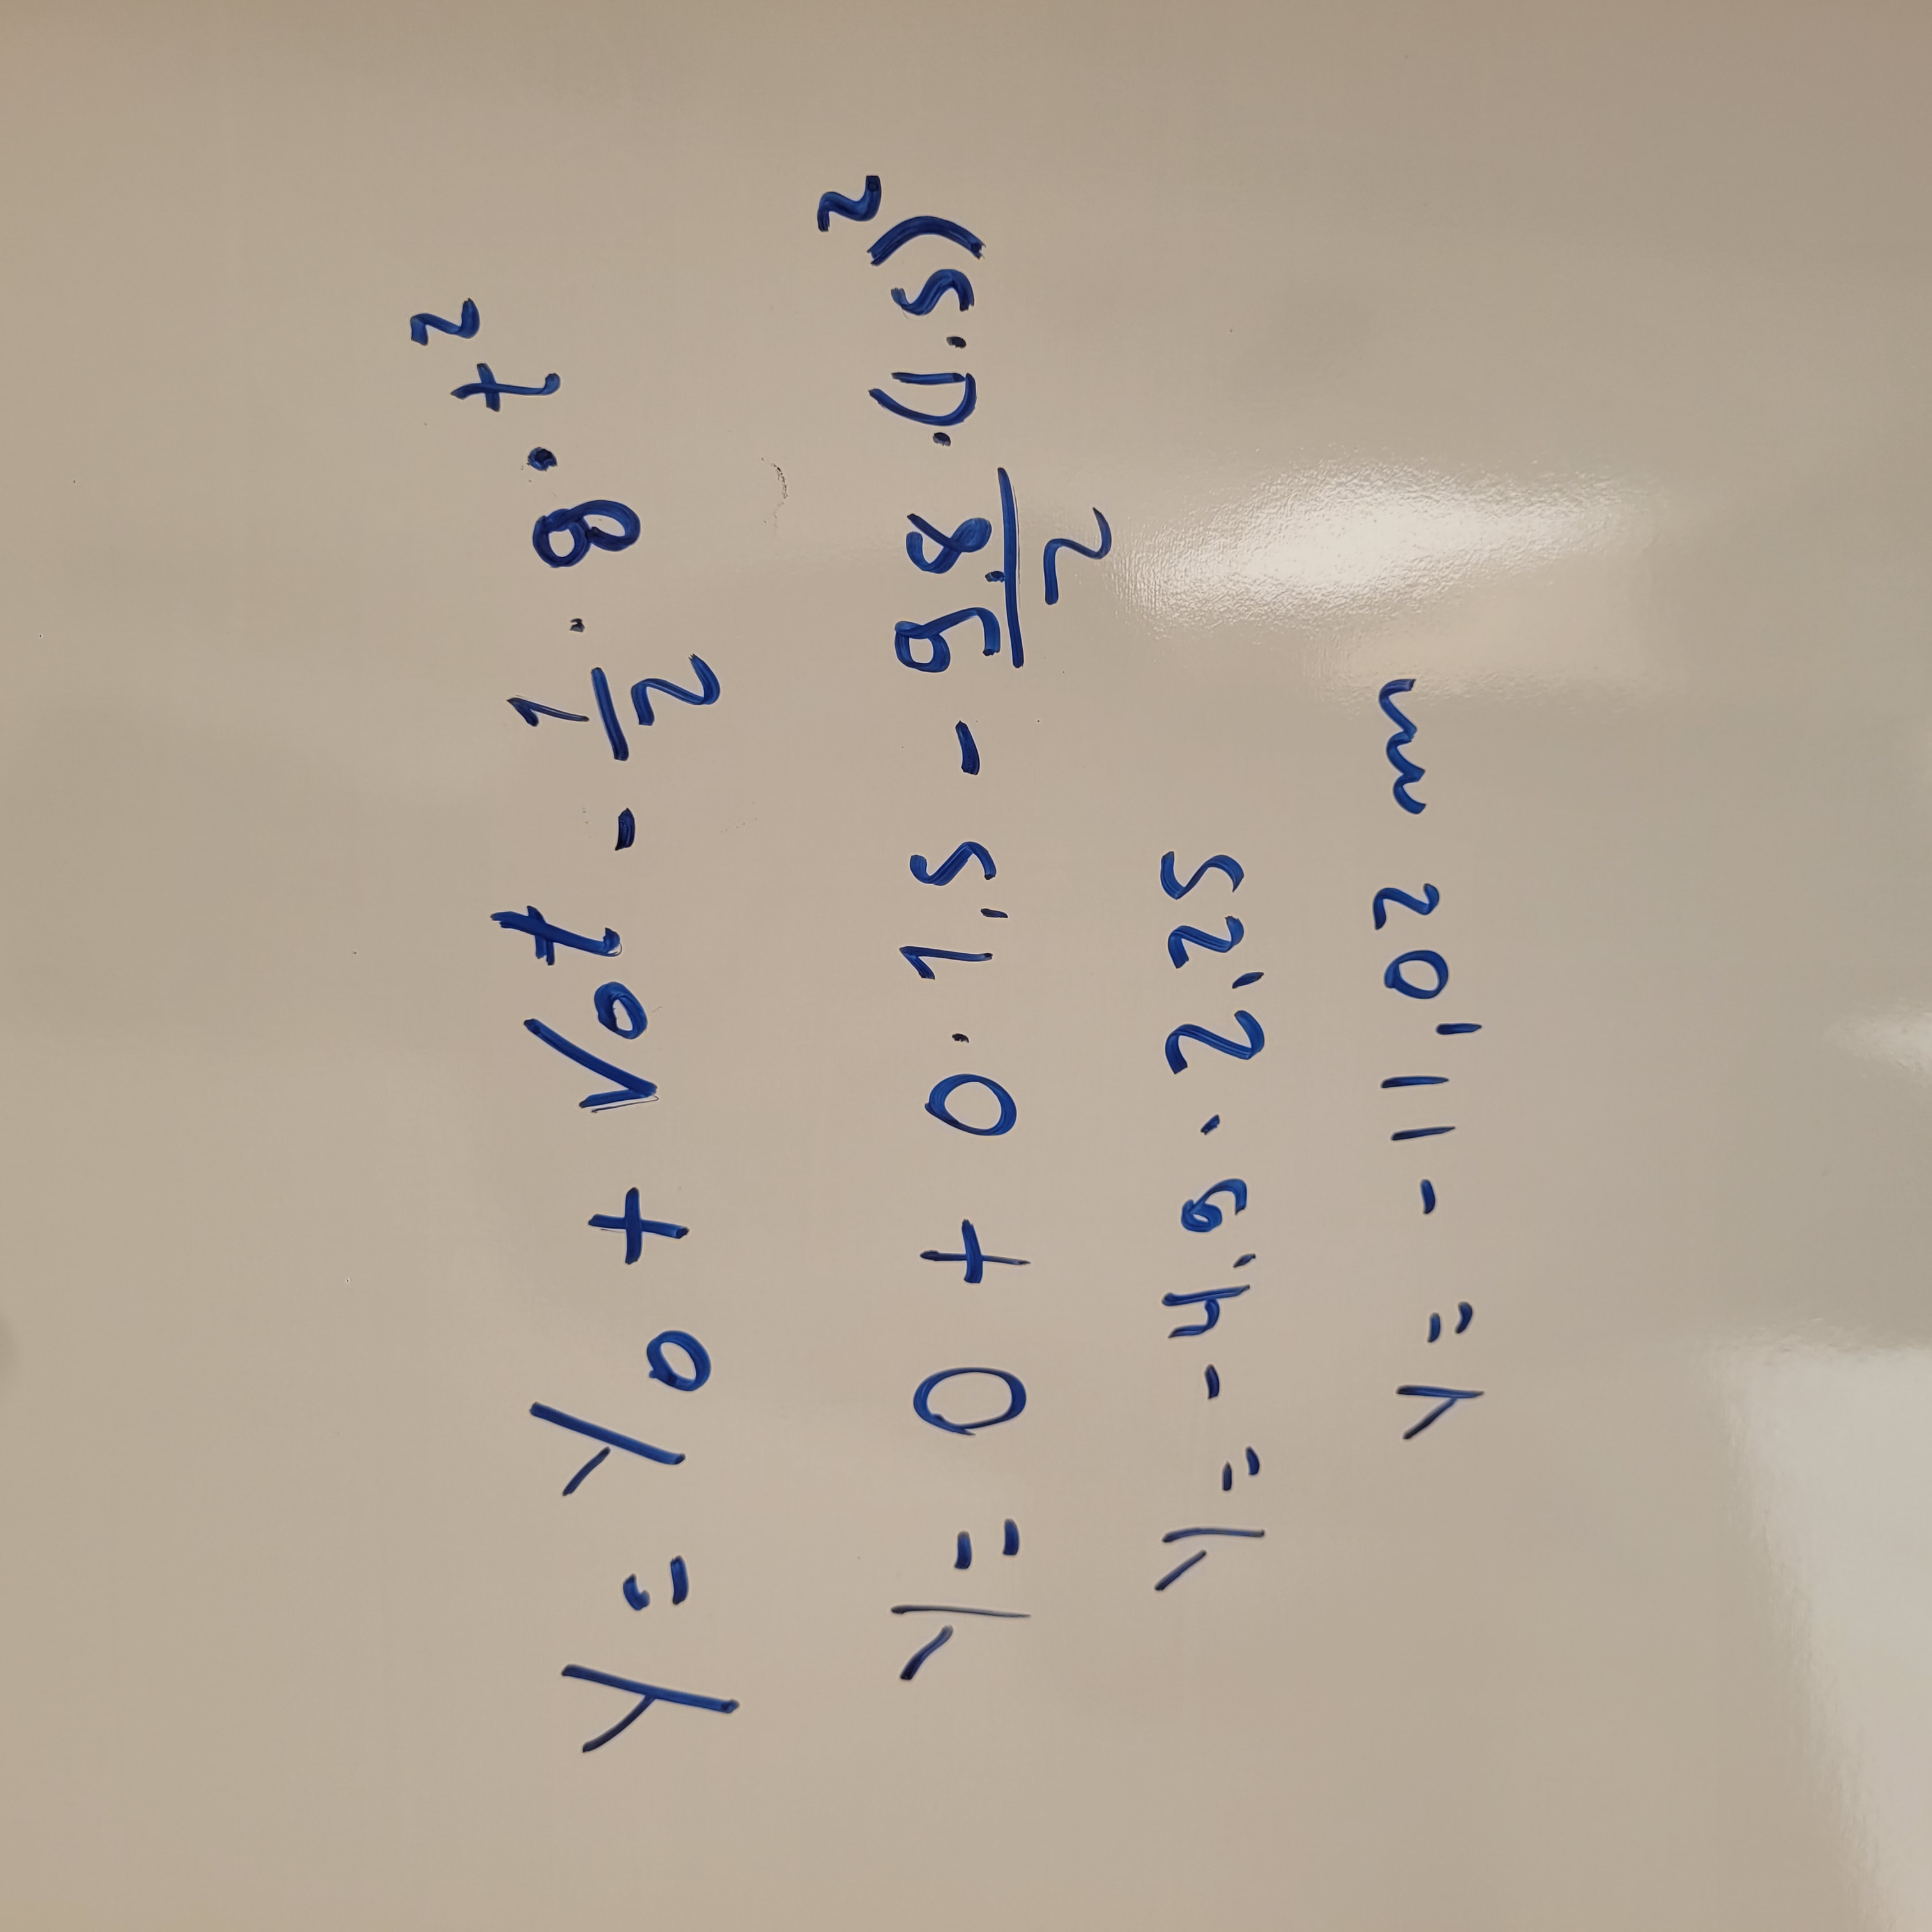 y = y₀ + v₀t - 1/2 · g · t²
y = 0 + 0 · 1,5 - 9.8/2 · (1.5)²
y = - 4,9 · 2,25
y = - 11,02 m